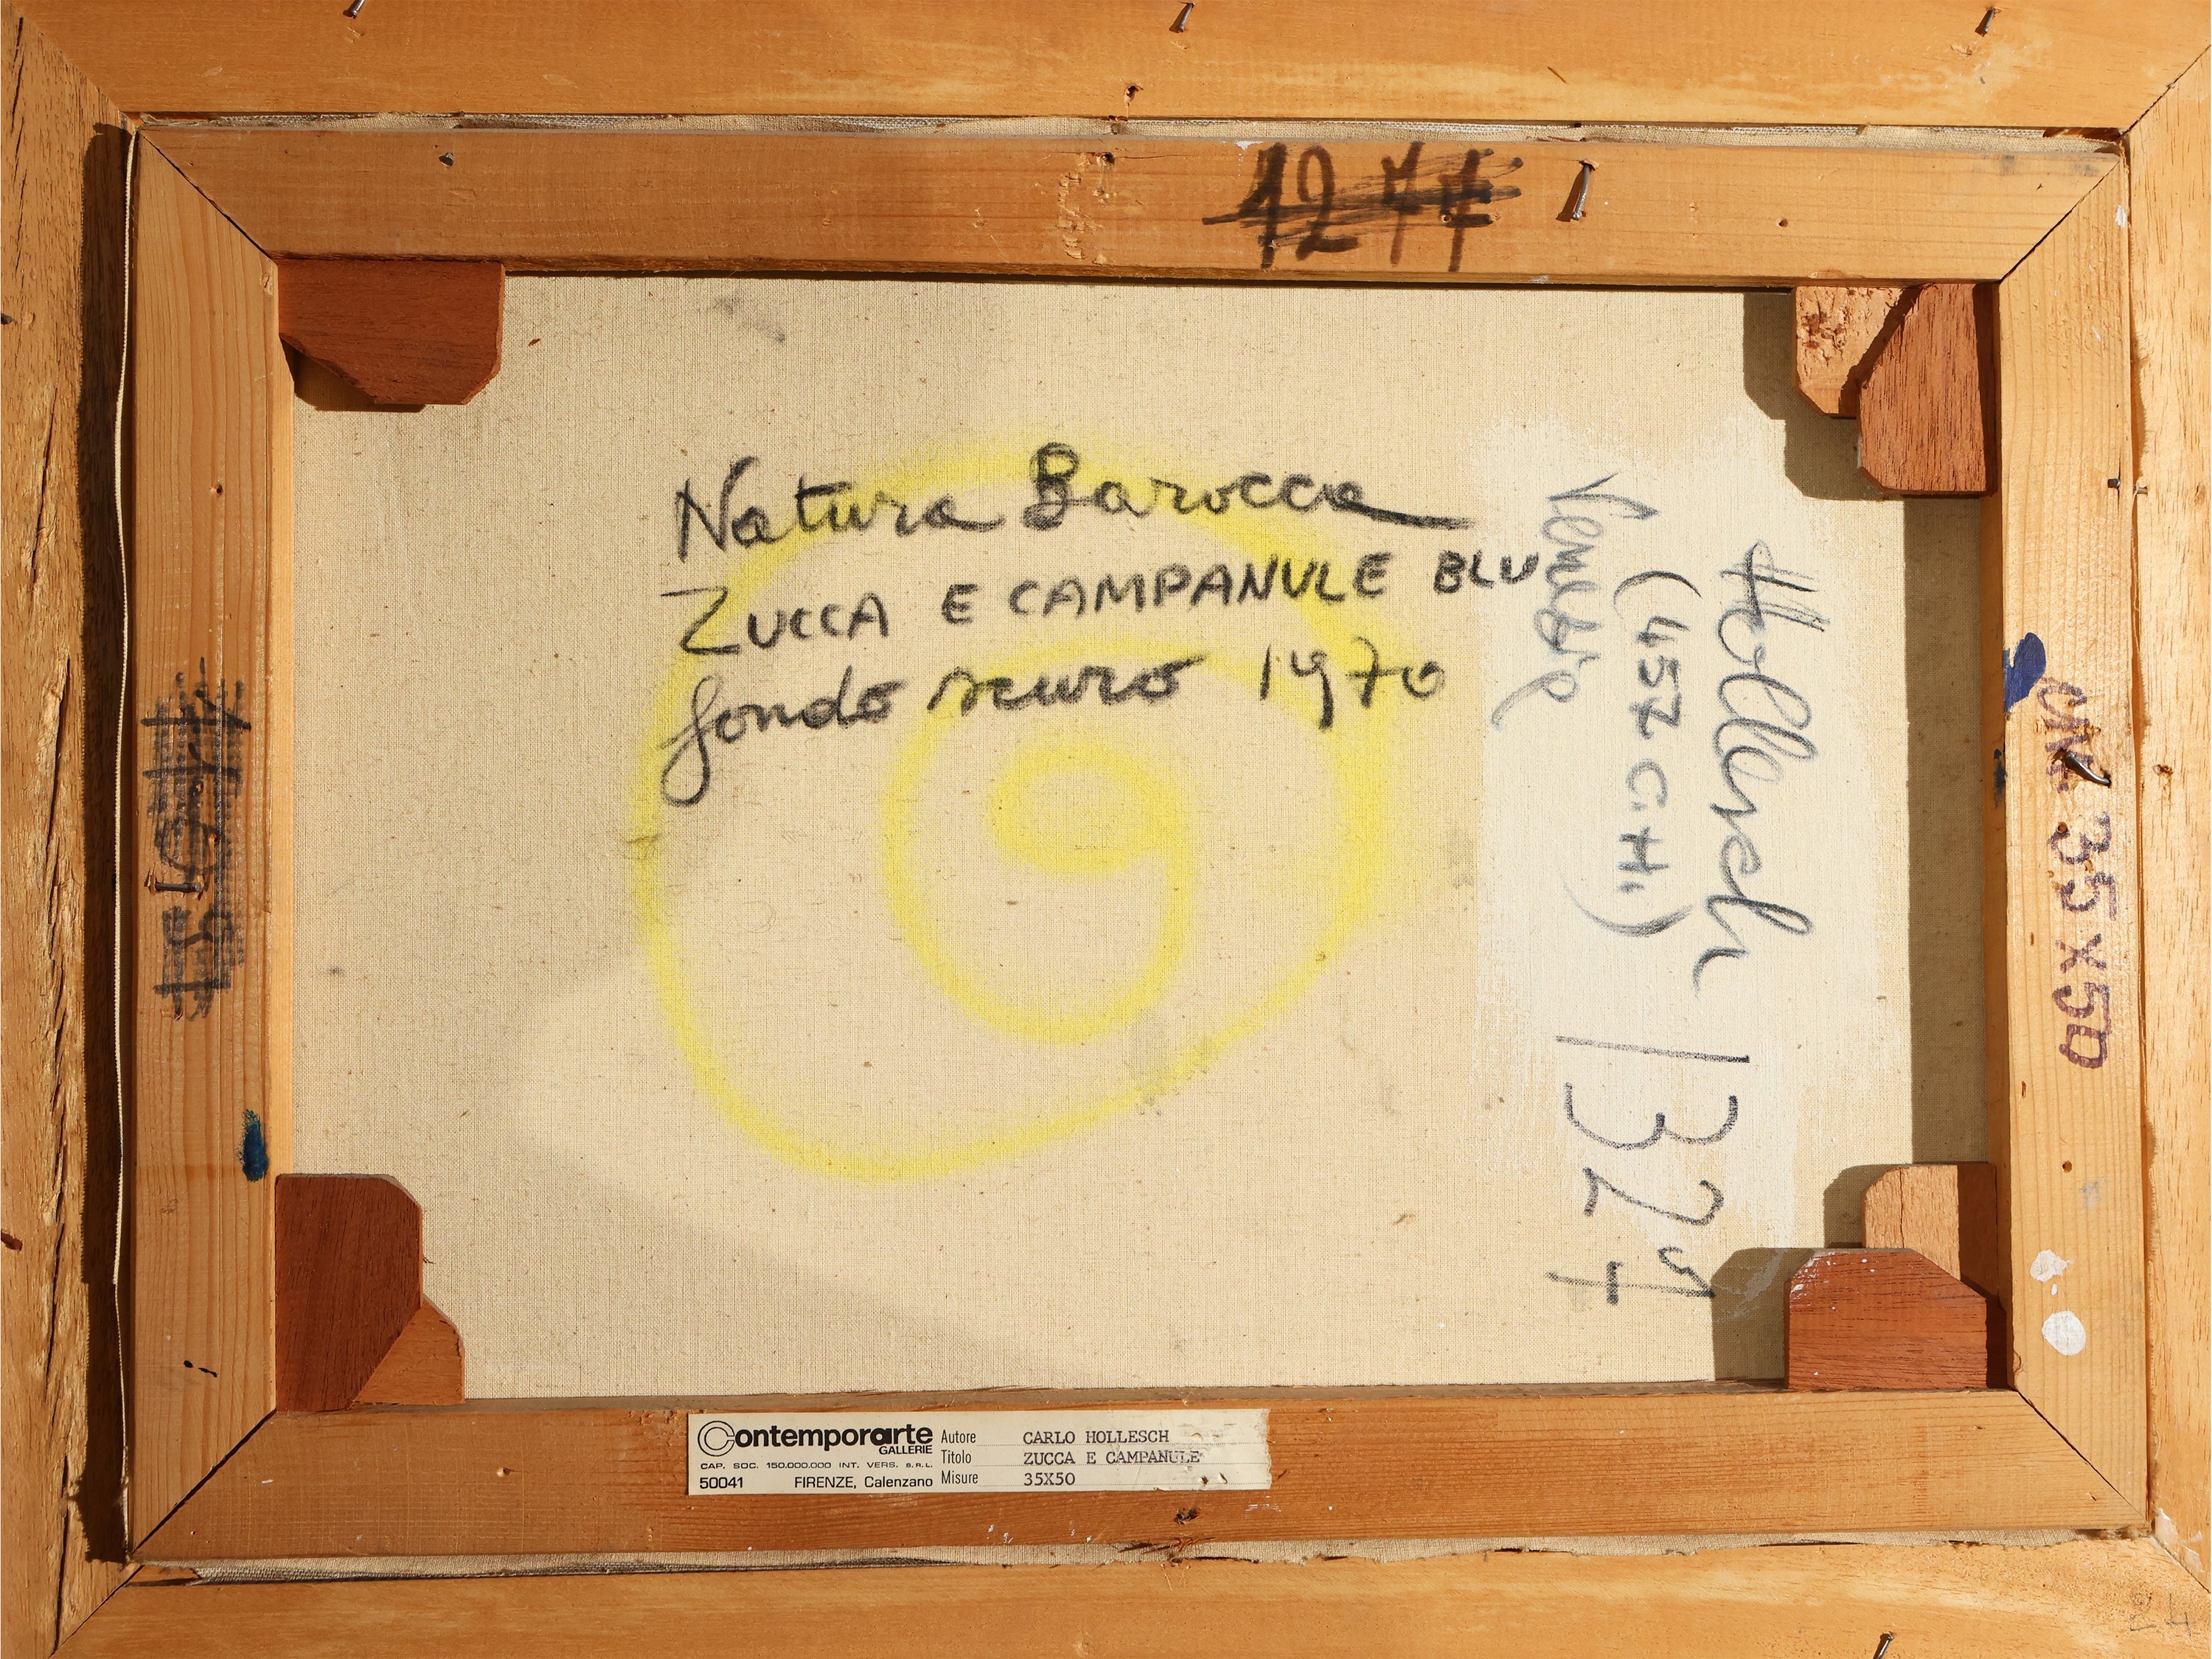 1277
Natura Barocca
ZUCCA E CAMPANULE BLU
fondo scuro 1970
Hollesch
(457 C.H.)
1327
CM. 35x50
Contemporarte
GALLERIE
CAP. SOC. 150.000.000 INT. VERS. S.R.L.
50041 FIRENZE, Calenzano
Autore CARLO HOLLESCH
Titolo ZUCCA E CAMPANULE
Misure 35X50
24